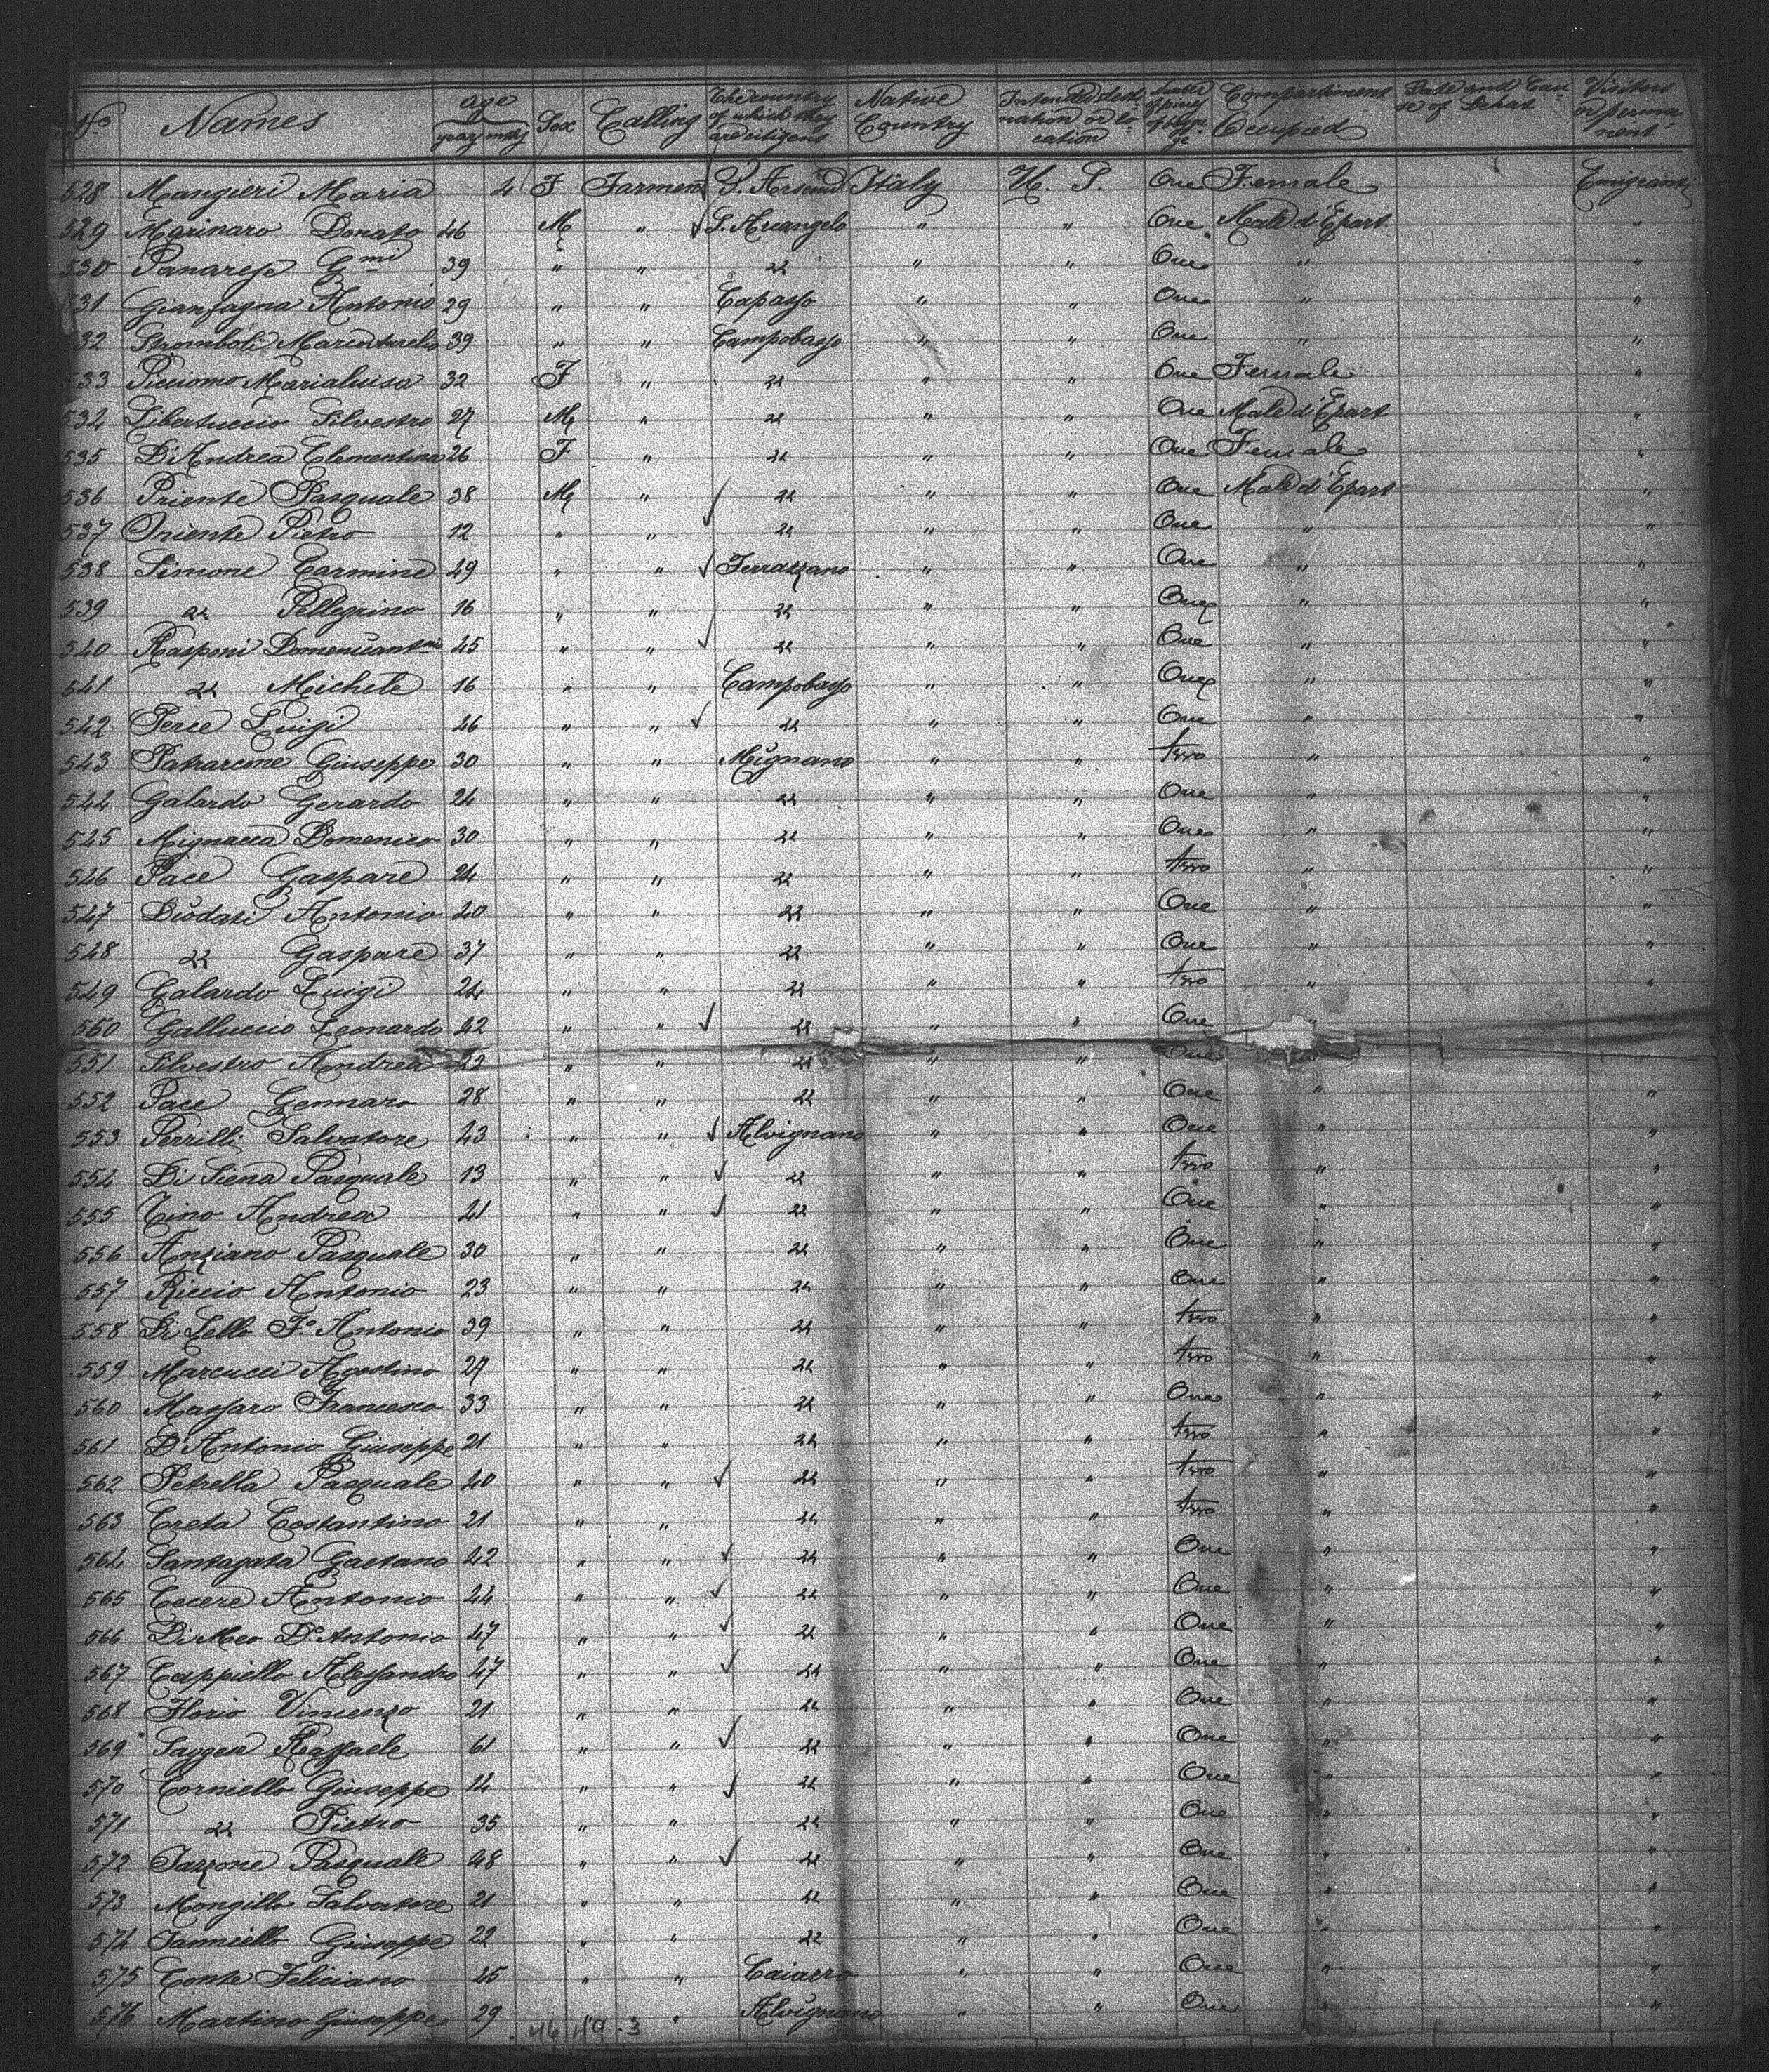 No Names age years mths Sex Calling The country of which they are citizens Native Country Intended destination or location Number of pieces of baggage Compartment Occupied Date and Cause of Dehat Visitors or permanent
528 Mangieri Maria 4 F Farmer Italy U. S. One Female Emigranti
529 Marinaro Donato 46 M " S. Arcangelo " " One Male d'Epart. "
530 Panarese Gmi 39 " " " " " One " "
531 Gianfagna Antonio 29 " " Capasso " " One " "
532 Stromboli Marcaurelio 39 " " Campobasso " " One " "
533 Picciomo Marialuisa 32 F " " " " One Female "
534 Libertuccio Silvestro 27 M " " " " One Male d'Epart "
535 D'Andrea Clementina 26 F " " " " One Female "
536 Priente Pasquale 38 M " " " " One Male d'Epart "
537 Oriente Pietro 12 " " " " " One " "
538 Simone Carmine 29 " " Ferrazzano " " One " "
539 " Pellegrino 16 " " " " " One " "
540 Rasponi 45 " " " " " One " "
541 " Michele 16 " " Campobasso " " One " "
542 Perce Luigi 46 " " " " " One " "
543 Patrarcone Giuseppe 30 " " Mignano " " two " "
544 Galardo Gerardo 24 " " " " " One " "
545 Mignacca Domenico 30 " " " " " One " "
546 Pace Gaspare 24 " " " " " two " "
547 Diodati Antonio 40 " " " " " One " "
548 " Gaspare 37 " " " " " One " "
549 Galardo Luigi 24 " " " " " two " "
550 Galluccio Leonardo 42 " " " " " One "
551 Silvestro Andrea " " " " " One
552 Pace Gennaro 28 " " " " " One " "
553 Perrilli Salvatore 43 " " Alvignano " " One " "
554 Di Siena Pasquale 13 " " " " " two " "
555 Tino Andrea 41 " " " " " One " "
556 Anziano Pasquale 30 " " " " " One " "
557 Riccio Antonio 23 " " " " " One " "
558 Di Lello F.o Antonio 39 " " " " " two " "
559 Marcucci Agostino 27 " " " " " two " "
560 Massaro Francesco 33 " " " " " One " "
561 D'Antonio Giuseppe 21 " " " " " two " "
562 Petrella Pasquale 40 " " " " " two " "
563 Creta Costantino 21 " " " " " two " "
564 Santagata Gaetano 42 " " " " " One " "
565 Cecere Antonio 44 " " " " " One " "
566 Di Meo D.o Antonio 47 " " " " " One " "
567 Cappiello Alessandro 47 " " " " " One " "
568 Florio Vincenzo 21 " " " " " One " "
569 Saggese Raffaele 61 " " " " " One " "
570 Corniello Giuseppe 14 " " " " " One " "
571 " Pietro 35 " " " " " One " "
572 Iazzone Pasquale 48 " " " " " One " "
573 Mongillo Salvatore 21 " " " " " One " "
574 Ianniello Giuseppe 22 " " " " " One " "
575 Conte Feliciano 45 " " Caiazzo " " One " "
576 Martino Giuseppe 29 " Alvignano " " One " "